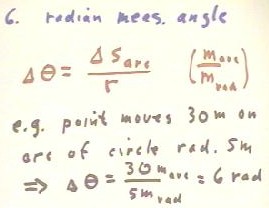 6. radian meas. angle
Δθ = Δs_arc / r (m_arc / m_rad)
e.g. point moves 30m on
arc of circle rad. 5m
⇒ Δθ = 30 m_arc / 5 m_rad = 6 rad